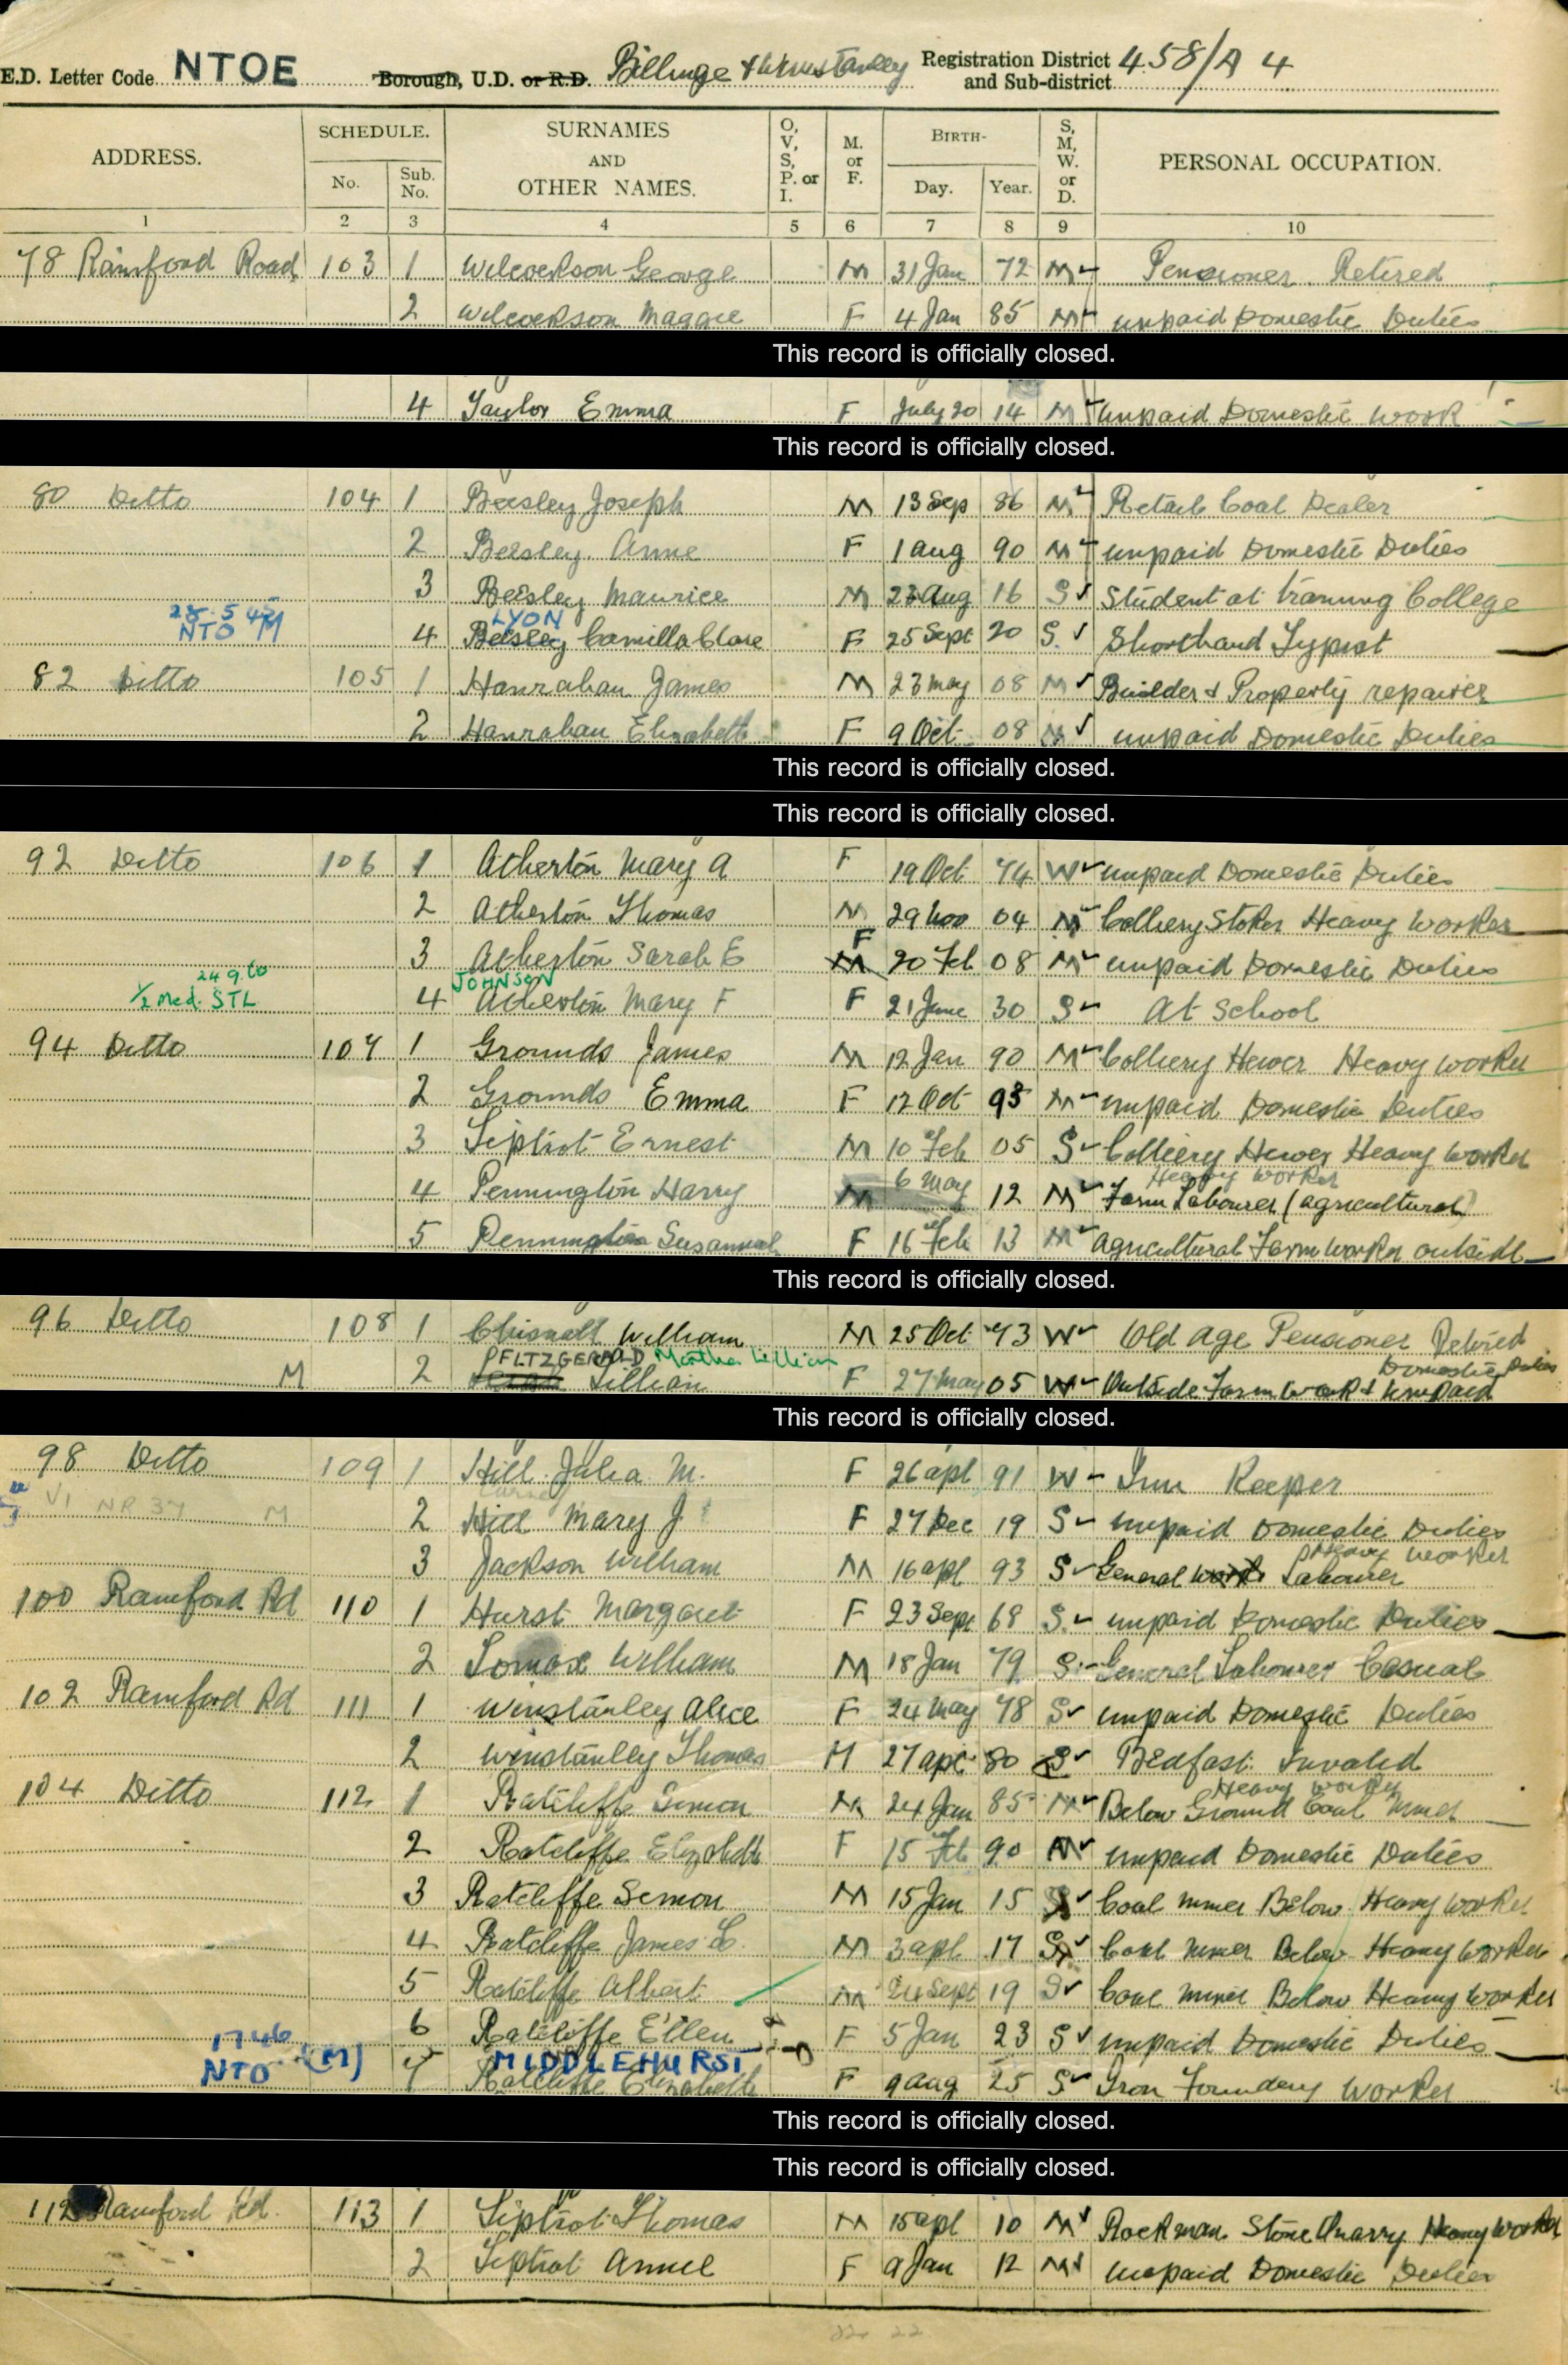 E.D. Letter Code NTOE Borough, U.D. or R.D. Billinge & Winstanley Registration District and Sub-district 458/A 4
ADDRESS. SCHEDULE. No. Sub. No. SURNAMES AND OTHER NAMES. O, V, S, P. or I. M. or F. BIRTH- Day. Year. S, M, W. or D. PERSONAL OCCUPATION.
1 2 3 4 5 6 7 8 9 10
78 Rainford Road 103 1 Wilcockson George M 31 Jan 72 M Pensioner Retired
2 Wilcockson Maggie F 4 Jan 85 M unpaid Domestic Duties
This record is officially closed.
4 Taylor Emma F July 20 14 M unpaid Domestic work
This record is officially closed.
80 Ditto 104 1 Beesley Joseph M 13 Sep 86 M Retail Coal Dealer
2 Beesley Anne F 1 Aug 90 M unpaid Domestic Duties
3 Beesley Maurice M 23 Aug 16 S Student at Training College
28.5.45 LYON
NTO M 4 Beesley Camilla Clare F 25 Sept 20 S. Shorthand Typist
82 Ditto 105 1 Hanrahan James M 23 May 08 M Builder & Property repairer
2 Hanrahan Elizabeth F 9 Oct 08 M unpaid Domestic Duties
This record is officially closed.
This record is officially closed.
92 Ditto 106 1 Atherton Mary A F 19 Oct 74 W unpaid Domestic Duties
2 Atherton Thomas M 29 Nov 04 M Colliery Stoker Heavy Worker
3 Atherton Sarah E M F 20 Feb 08 M unpaid Domestic Duties
24 9 60 JOHNSON
1/2 Med. STL 4 Atherton Mary F F 21 June 30 S At School
94 Ditto 107 1 Grounds James M 12 Jan 90 M Colliery Hewer Heavy Worker
2 Grounds Emma F 12 Oct 93 M unpaid Domestic Duties
3 Liptrot Ernest M 10 Feb 05 S Colliery Hewer Heavy Worker
Heavy Worker
4 Pennington Harry M 6 May 12 M Farm Labourer (agricultural)
5 Pennington Susannah F 16 Feb 13 M Agricultural Farm Worker outside
This record is officially closed.
96 Ditto 108 1 Chisnall William M 25 Oct 73 W Old Age Pensioner Retired
FITZGERALD Martha Lillian Domestic Duties
M 2 Lillian F 27 May 05 W Outside Farm Work & Unpaid
This record is officially closed.
98 Ditto 109 1 Hill Julia M. F 26 Apl 91 W Inn Keeper
VI NR 37 M 2 Hill Mary J F 27 Dec 19 S unpaid Domestic Duties
Heavy Worker
3 Jackson William M 16 Apl 93 S General Work Labourer
100 Rainford Rd 110 1 Hurst Margaret F 23 Sept 68 S. unpaid Domestic Duties
2 Lomax William M 18 Jan 79 S. General Labourer Casual
102 Rainford Rd 111 1 Winstanley Alice F 24 May 78 S unpaid Domestic Duties
2 Winstanley Thomas M 27 Apl 80 S Bedfast Invalid
Heavy Worker
104 Ditto 112 1 Ratcliffe Simon M 24 Jan 85 M Below Ground Coal Miner
2 Ratcliffe Elizabeth F 15 Feb 90 M unpaid Domestic Duties
3 Ratcliffe Simon M 15 Jan 15 S Coal Miner Below Heavy Worker
4 Ratcliffe James L. M 3 Apl 17 S Coal Miner Below Heavy Worker
5 Ratcliffe Albert M 24 Sept 19 S Coal Miner Below Heavy Worker
6 Ratcliffe Ellen F 5 Jan 23 S unpaid Domestic Duties
1746 MIDDLEHURST
NTO (M) 7 Ratcliffe Elizabeth F 9 Aug 25 S Iron Foundery Worker
This record is officially closed.
This record is officially closed.
112 Rainford Rd. 113 1 Liptrot Thomas M 15 Apl 10 M Rockman Stone Quarry Heavy Worker
2 Liptrot Annie F 9 Jan 12 M unpaid Domestic Duties